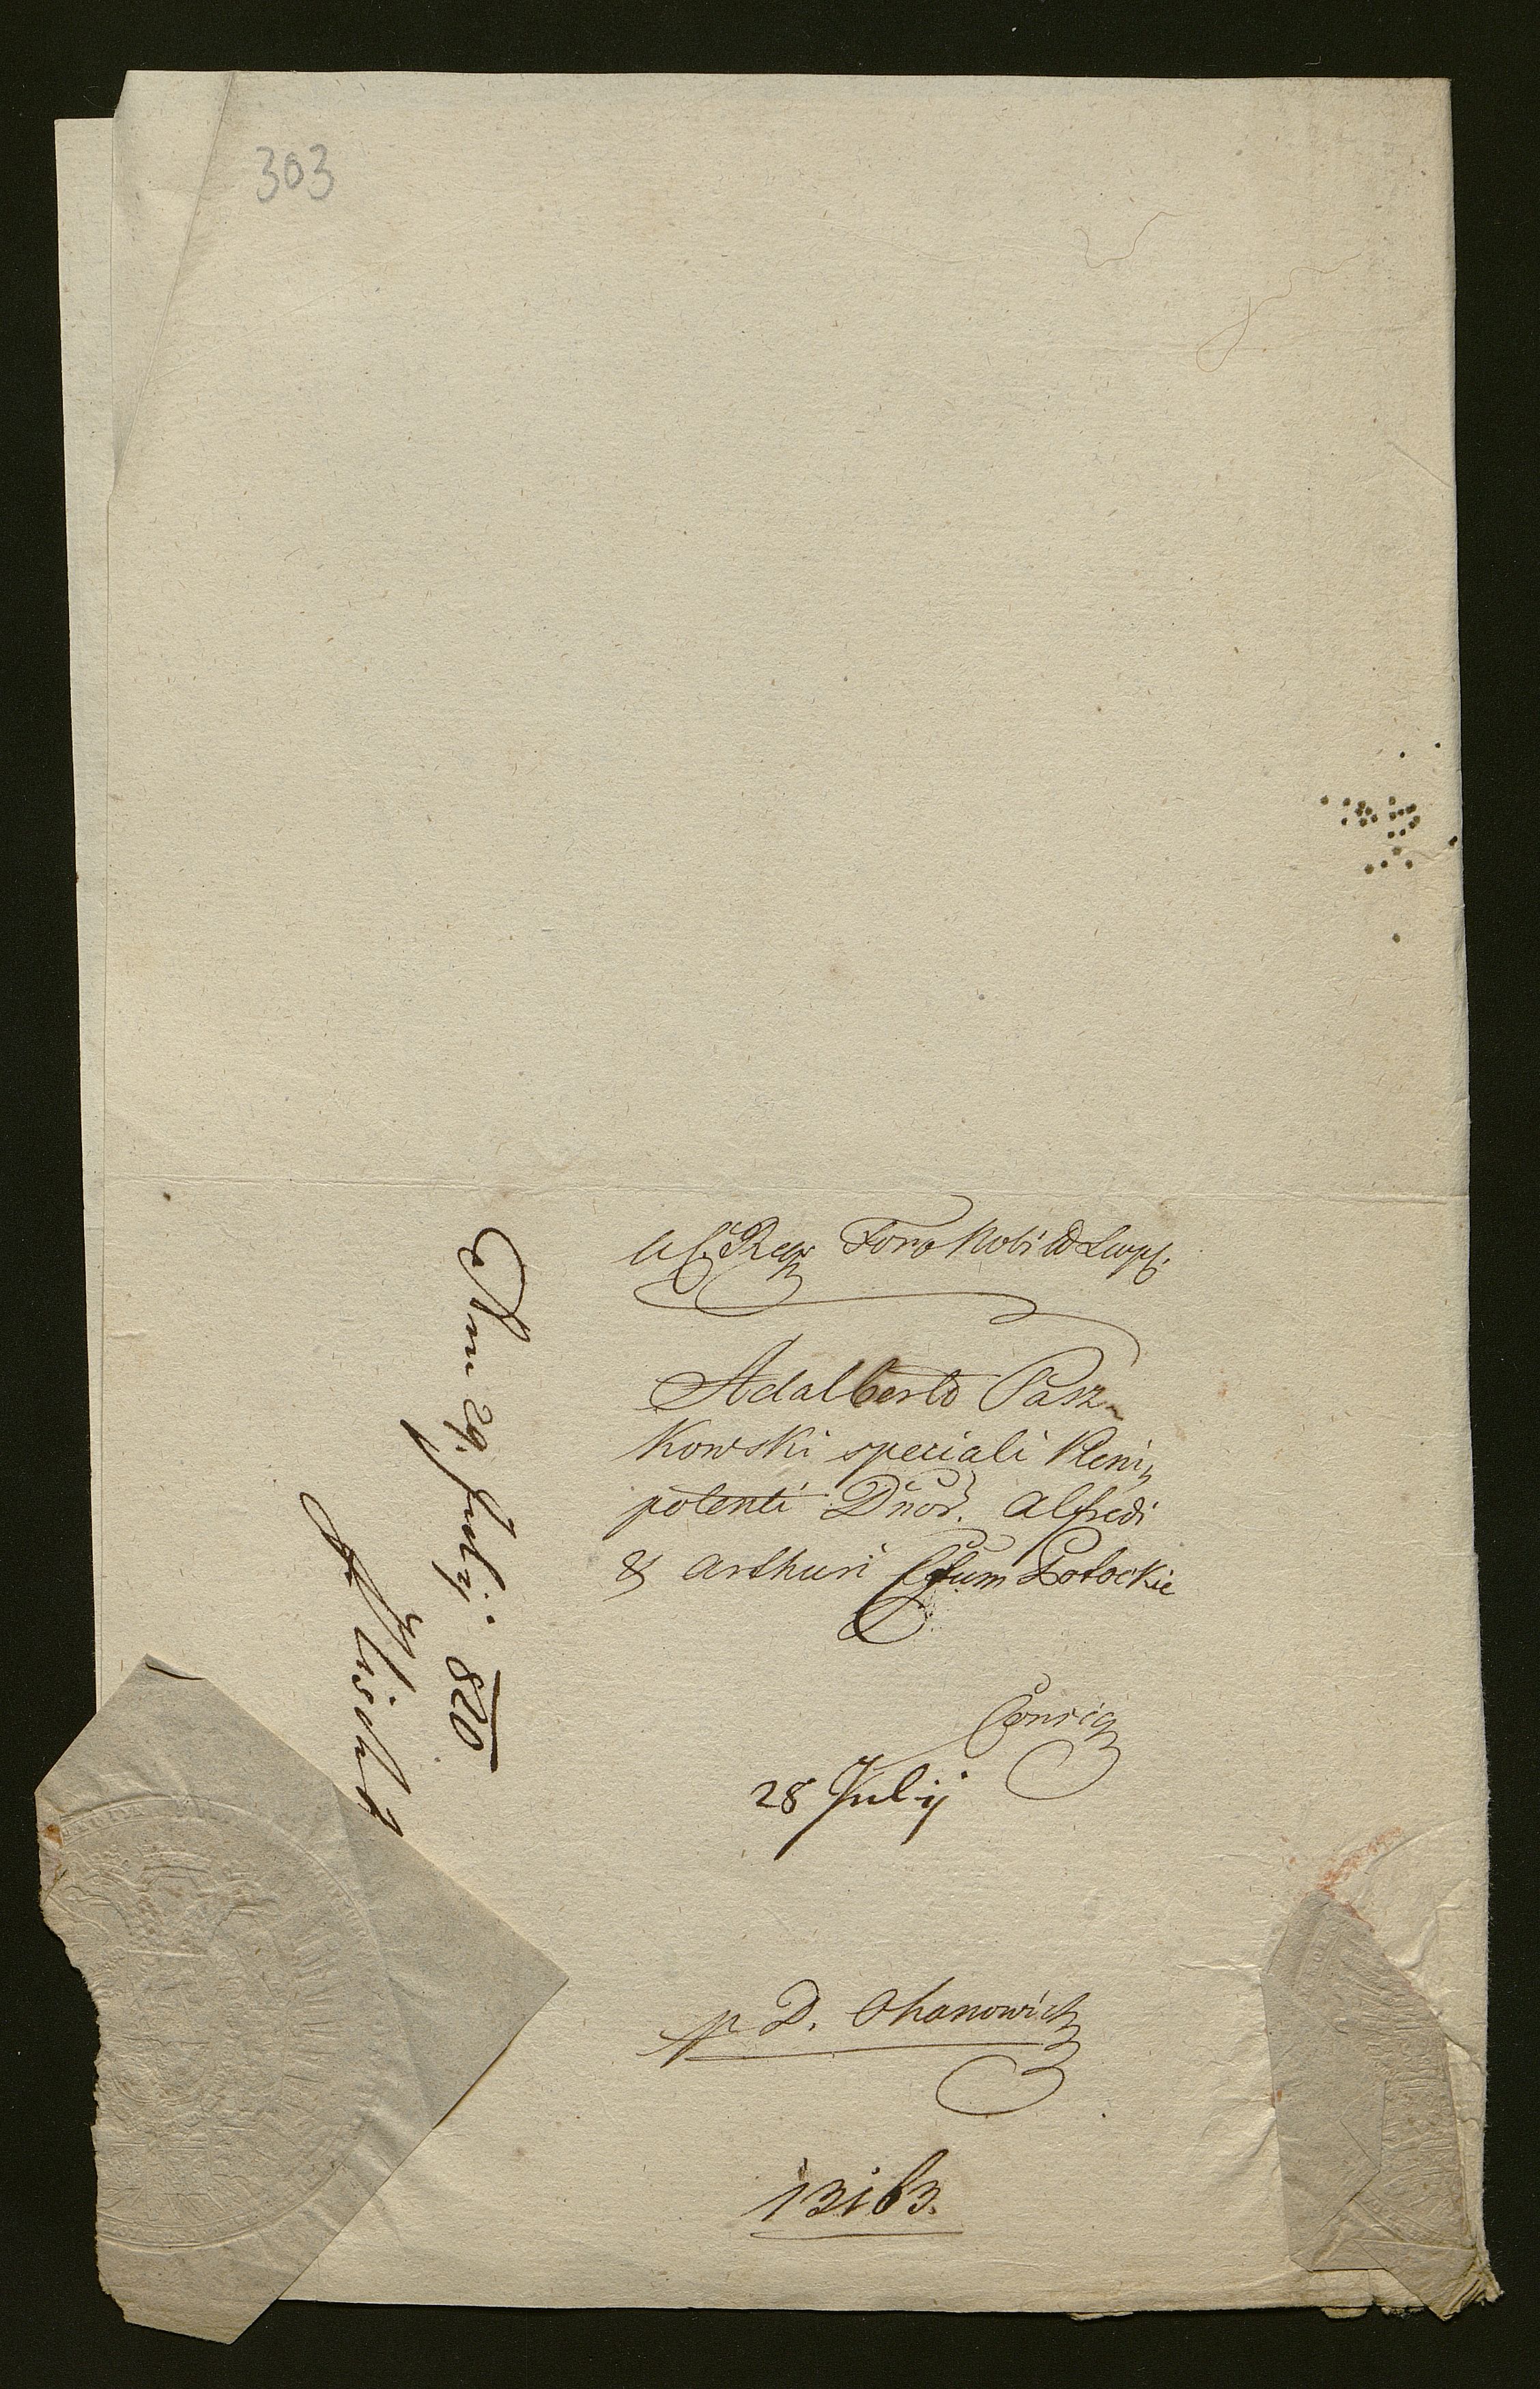 303
Foro Nob:
Adalberto Pasz-
kowski speciali Pleni-
potenti Dnor. Alfredi
& Arthuri Cttum Potockie
28 Julij
p D. Ohanowicz
13163.
29. Julij. 820